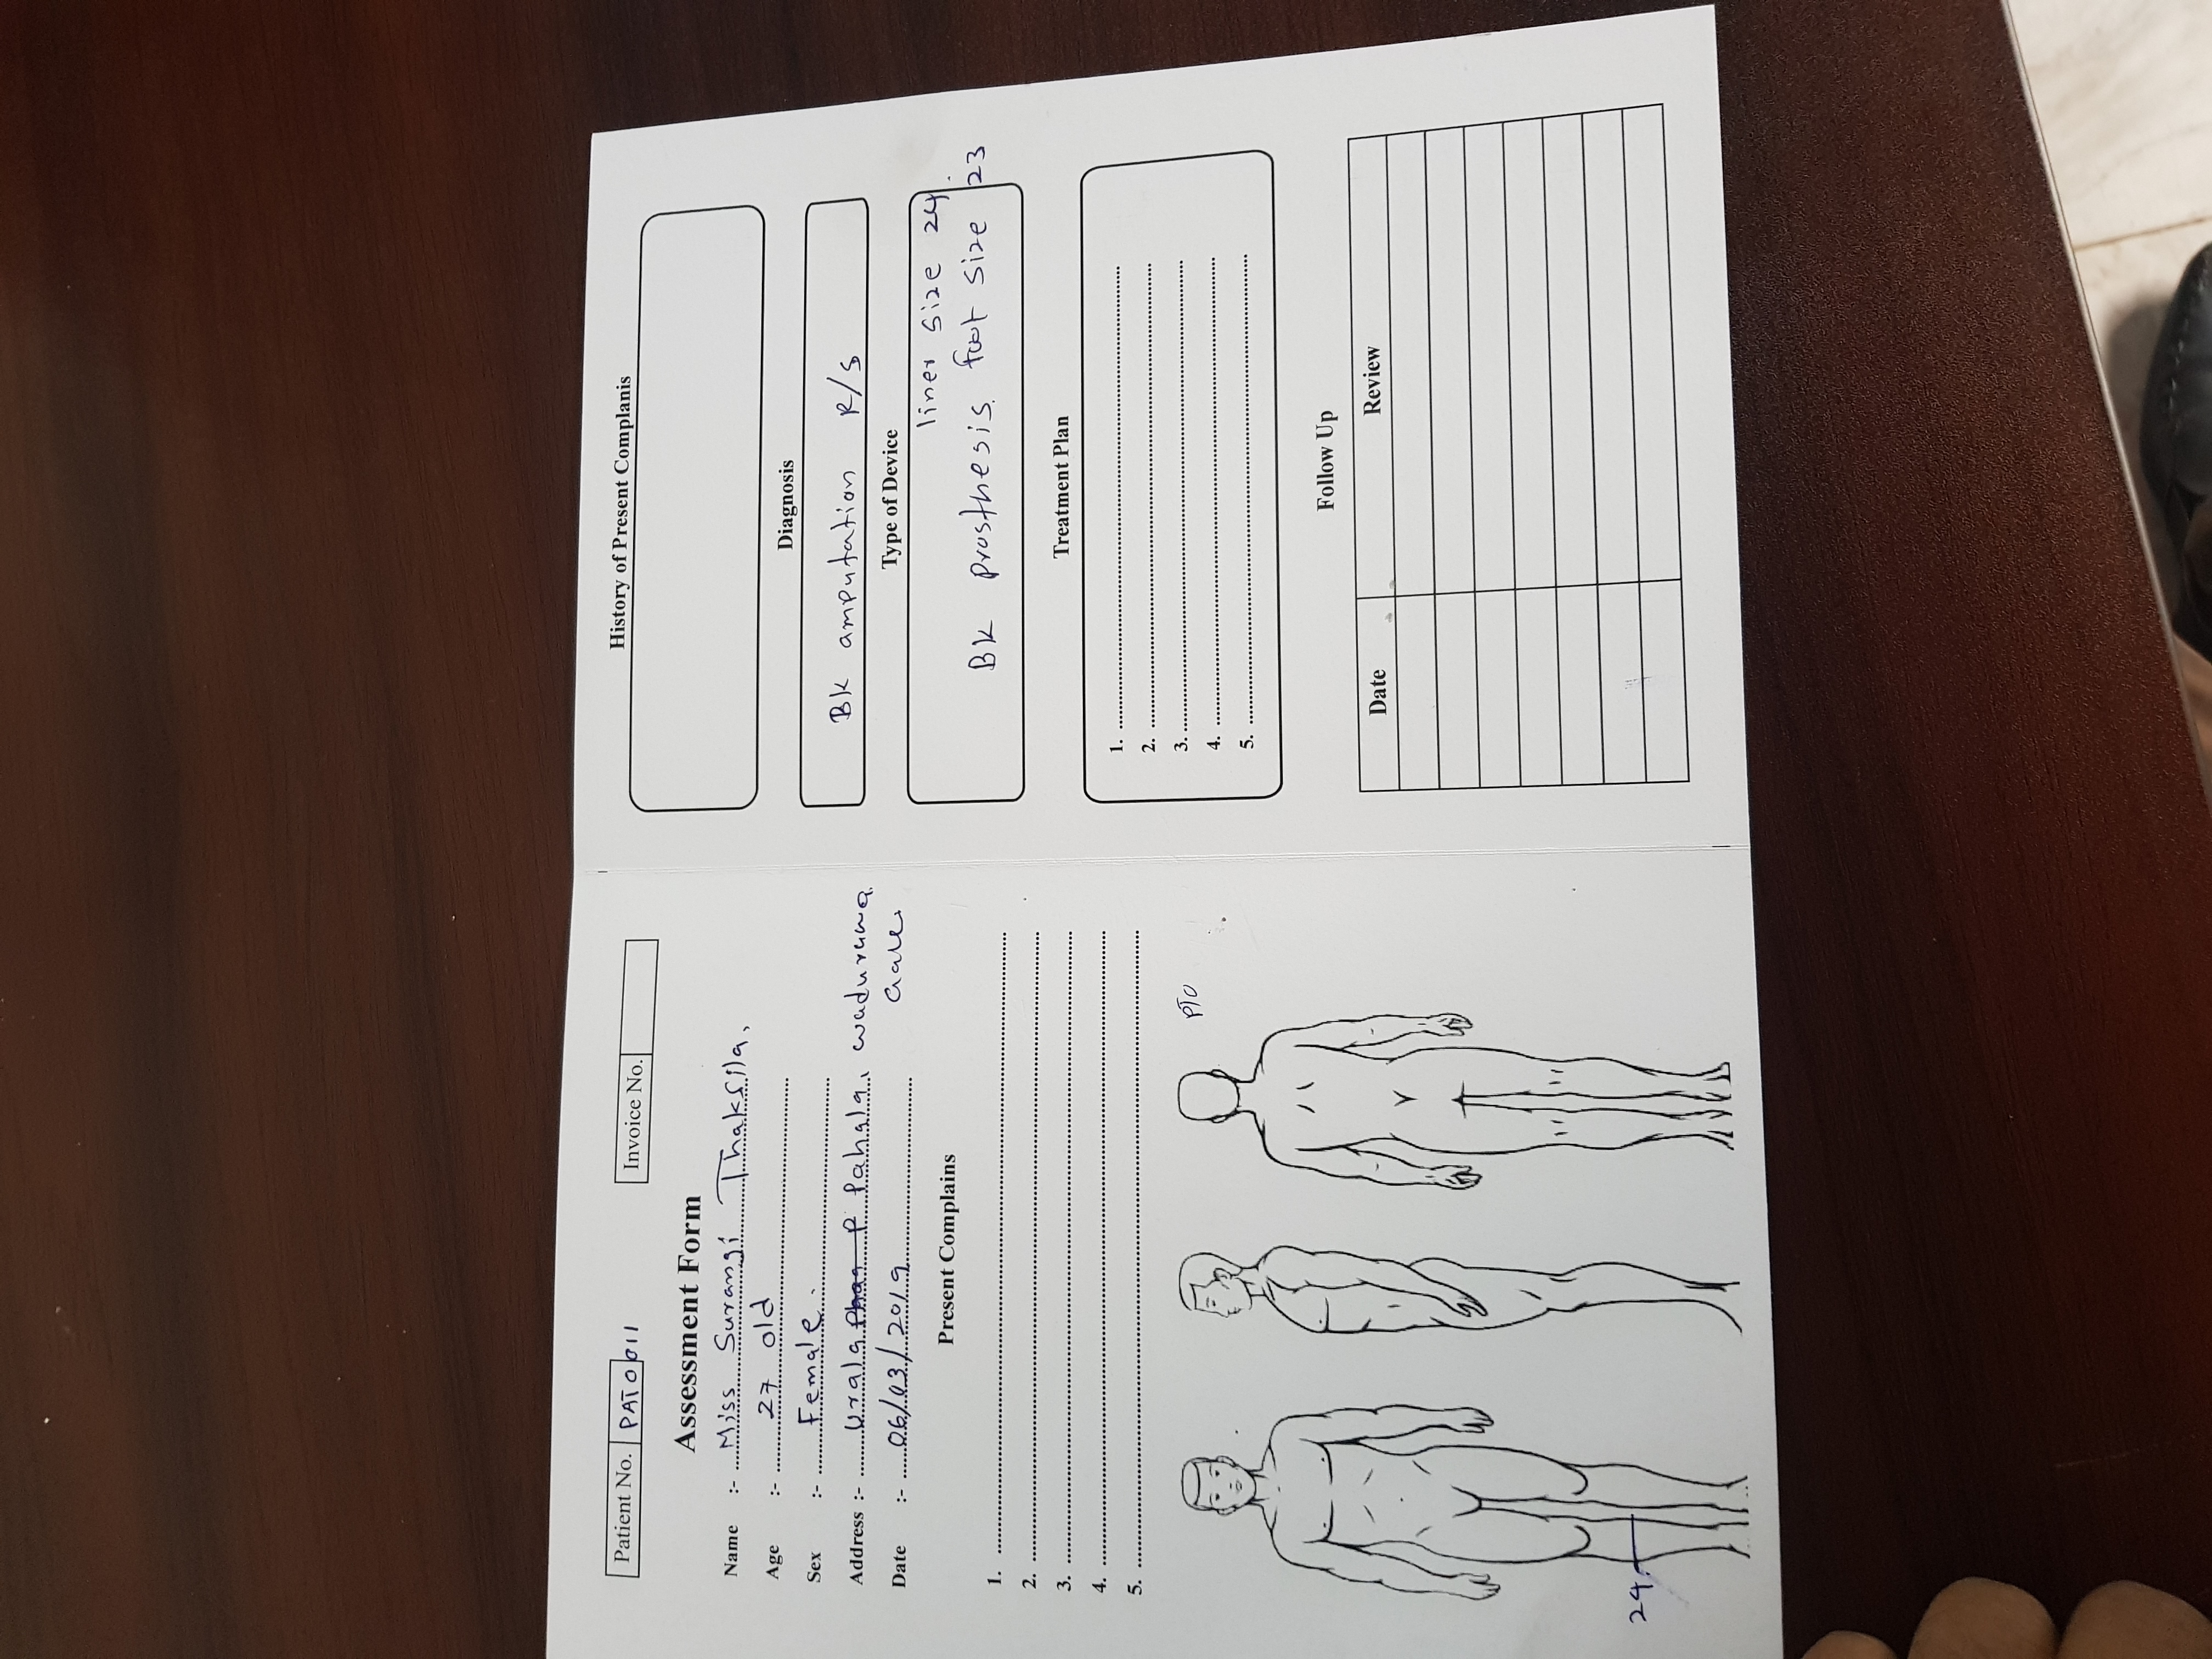 Patient No. PAT0011
Invoice No.
Assessment Form
Name :- Miss Surangi Thaksila,
Age :- 27 old
Sex :- Female.
Address :- Urala P Pahala, waduruwa
Galle.
Date :- 06/03/2019
Present Complains
1.
2.
3.
4.
5.
PTO
24
History of Present Complanis
Diagnosis
BK amputation R/S
Type of Device
liner size 24.
BK prosthesis. foot size 23
Treatment Plan
1.
2.
3.
4.
5.
Follow Up
Date Review